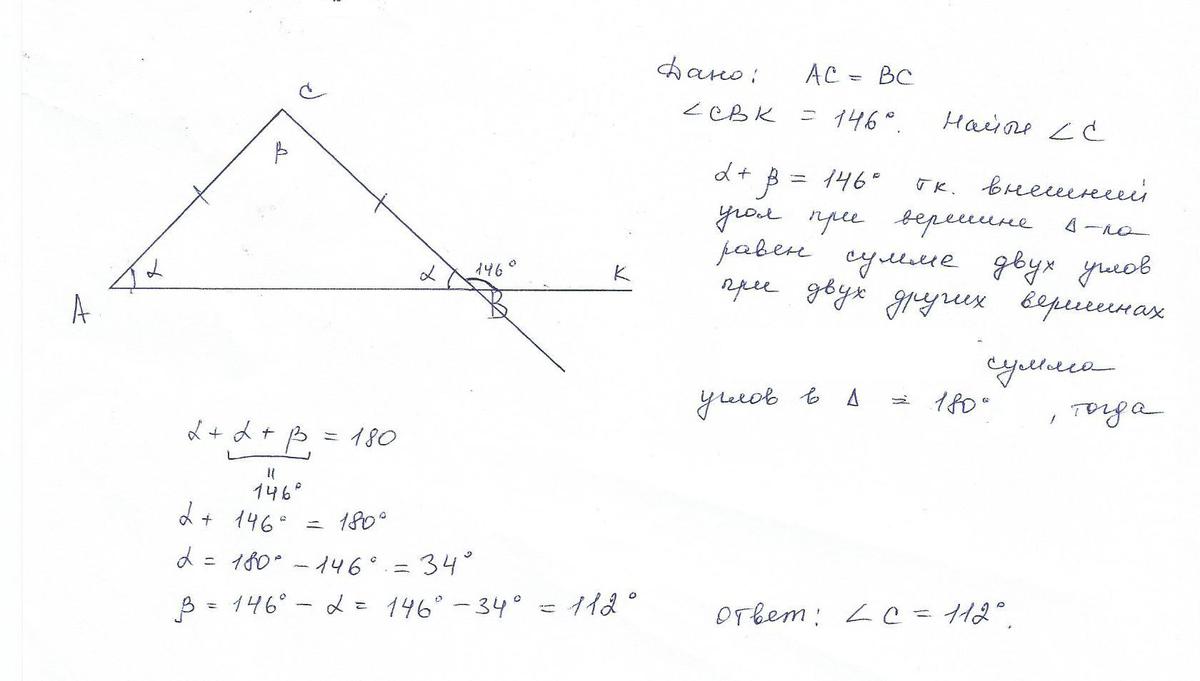 C
β
α
α
146°
K
A
B
Дано: AC = BC
∠CBK = 146°. Найти ∠C
α + β = 146° тк. внешний
угол при вершине Δ-ка
равен сумме двух углов
при двух других вершинах
сумма
углов в Δ = 180° , тогда
α + α + β = 180
"
146°
α + 146° = 180°
α = 180° - 146° = 34°
β = 146° - α = 146° - 34° = 112°
Ответ: ∠C = 112°.